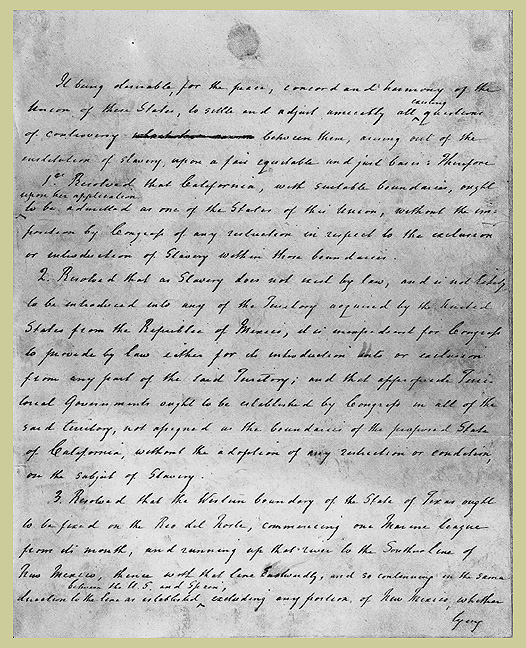 It being desirable, for the peace, concord and harmony of the
Union of these States, to settle and adjust amicably all existing questions
of controversy between them, arising out of the
institution of Slavery, upon a fair equitable and just basis: Therefore
1st. Resolved that California, with suitable boundaries, ought
upon her application
to be admitted as one of the States of this Union, without the im-
position by Congress of any restriction in respect to the exclusion
or introduction of Slavery within those boundaries.
2. Resolved that as Slavery does not exist by law, and is not likely
to be introduced into any of the Territory acquired by the United
States from the Republic of Mexico, it is inexpedient for Congress
to provide by law either for its introduction into or exclusion
from any part of the said Territory; and that appropriate Terri-
torial Governments ought to be established by Congress in all of the
said territory, not assigned as the boundaries of the proposed State
of California, without the adoption of any restriction or condition,
on the subject of Slavery.
3. Resolved that the Western boundary of the State of Texas ought
to be fixed on the Rio del Norte, commencing one Marine league
from its mouth, and running up that river to the Southern line of
New Mexico, thence with that line Eastwardly, and so continuing in the same
between the U.S. and Spain,
direction to the line as established excluding any portion of New Mexico, whether
lying